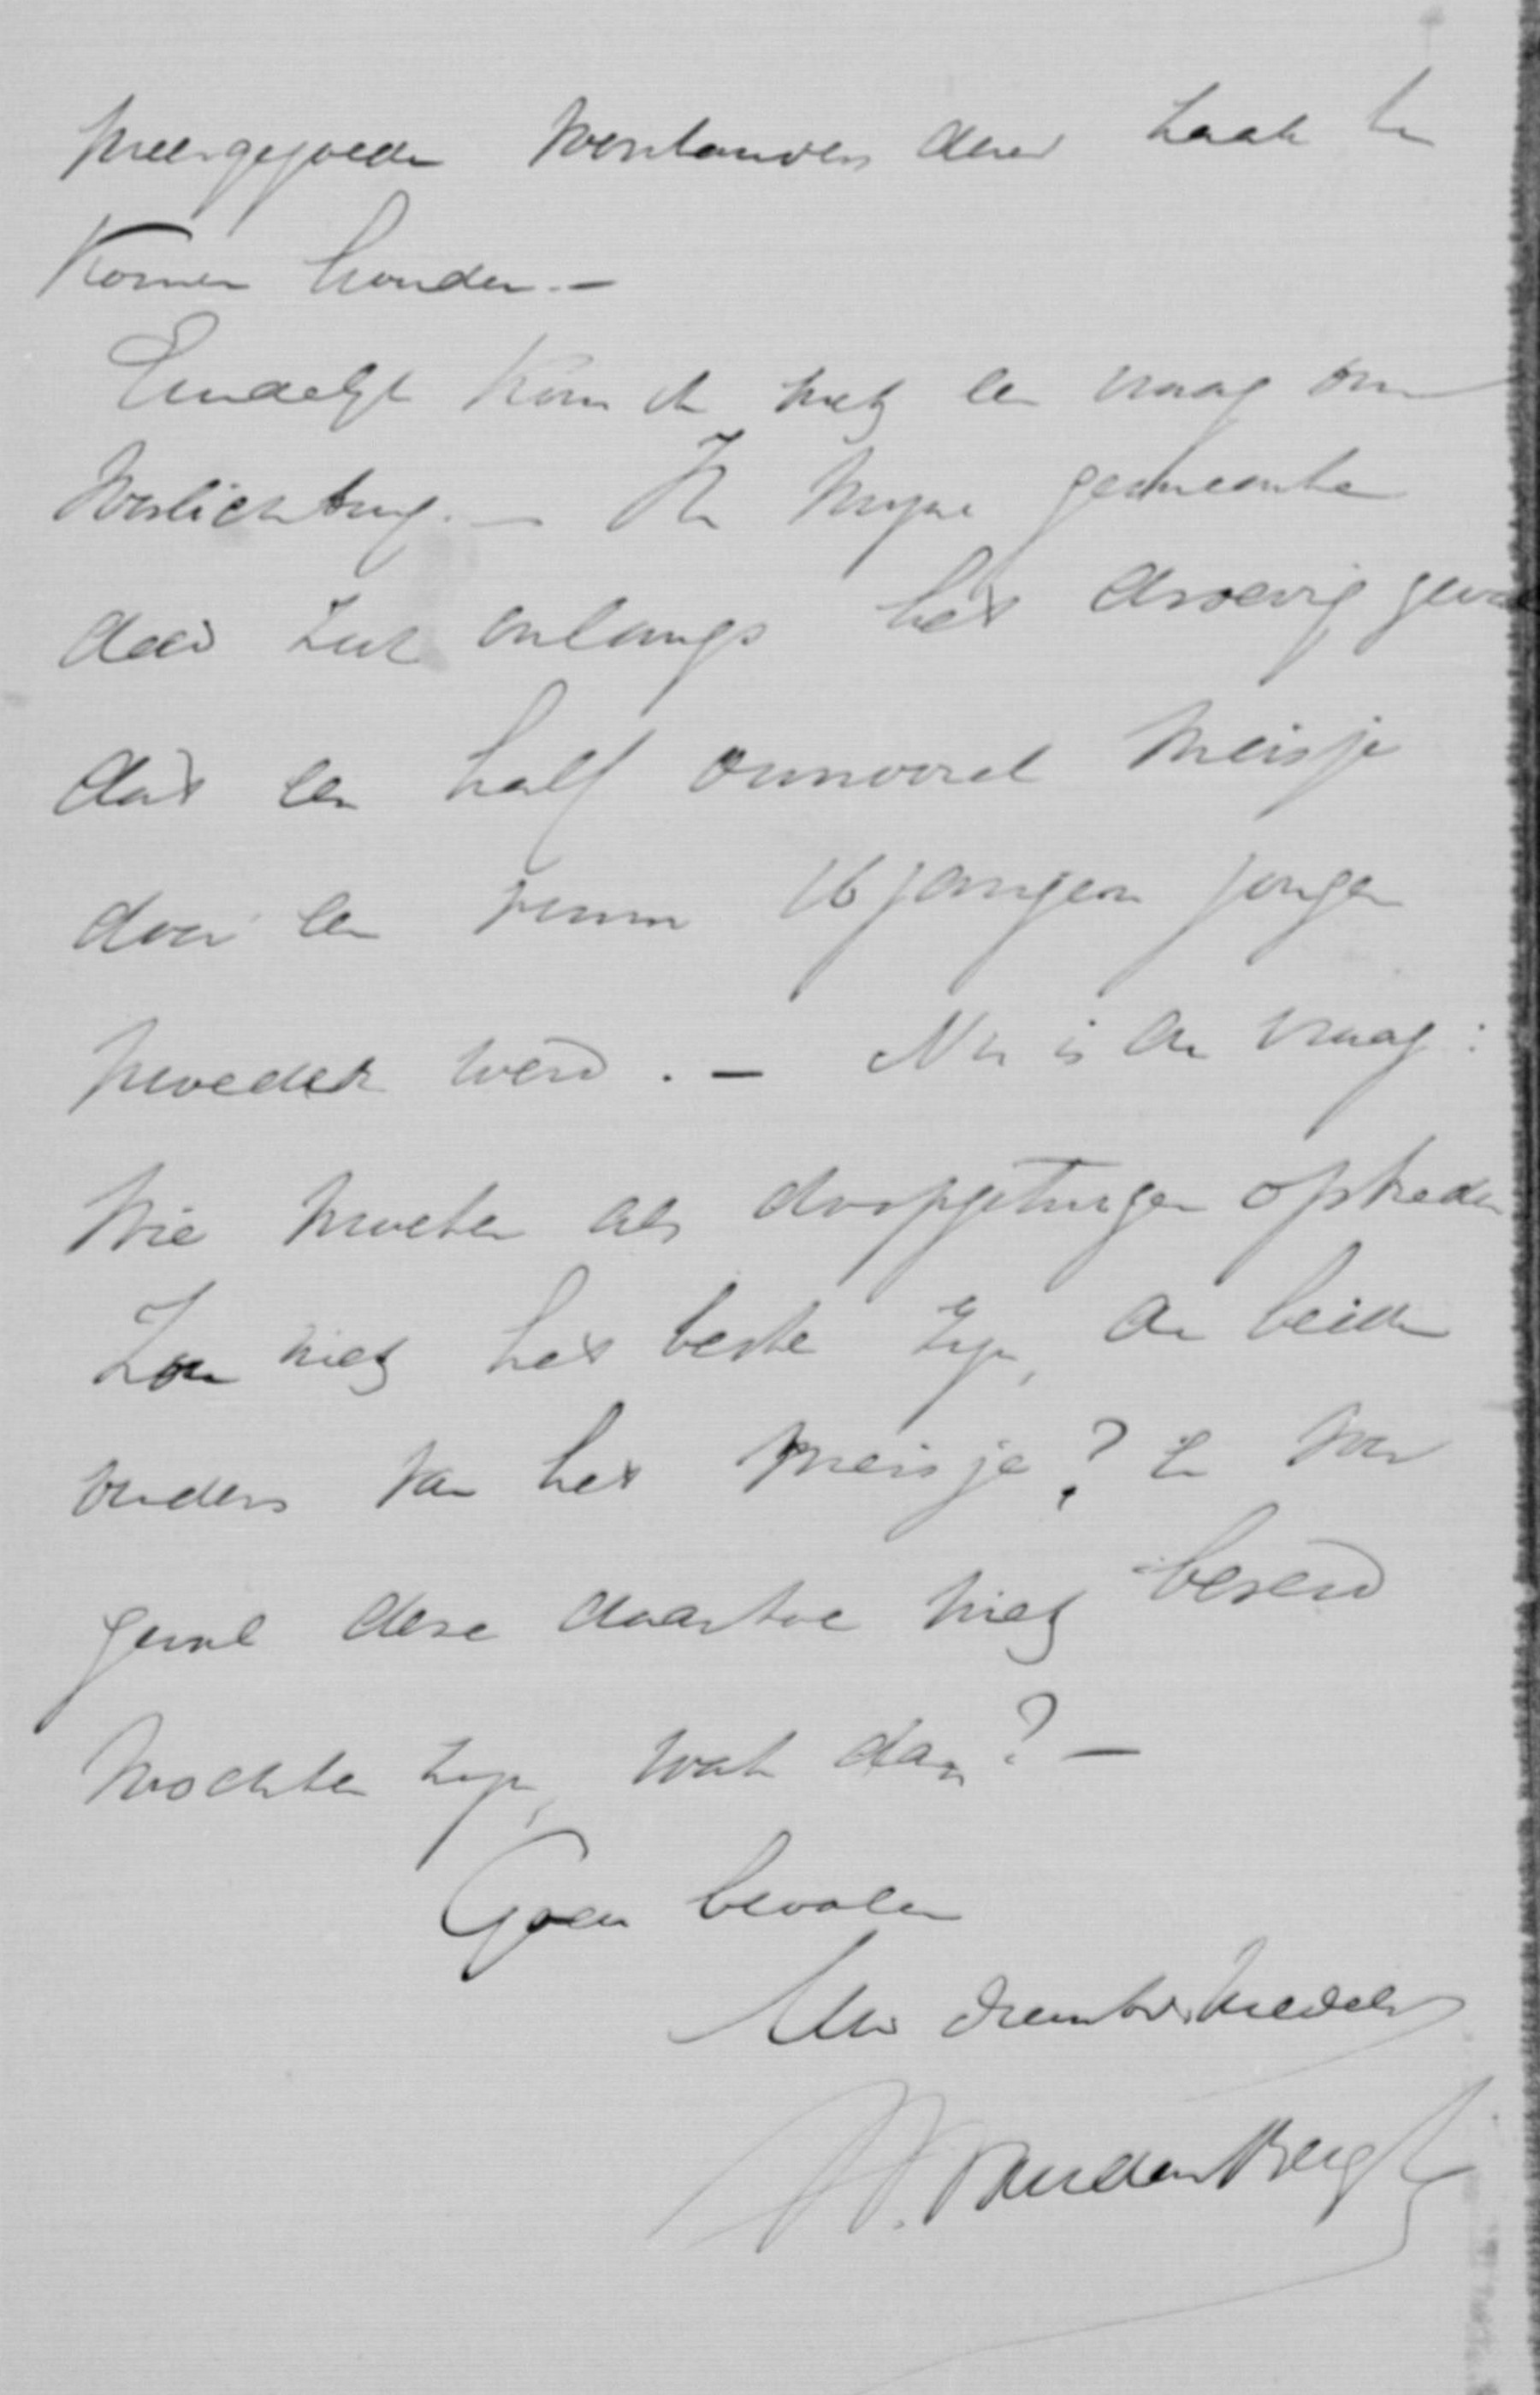 meergegoede voorstanders dezer zaak te
komen houden. —
Eindelijk kom ik met een vraag om
voorlichting. — In mijne gemeente
deed zich onlangs het droevig geval
dat een half onnoozel meisje
door een ruim 16 jarigen jongen
moeder werd. — Nu is de vraag:
Wie moeten als doopgetuigen optreden
Zou niet het beste zijn, de beide
ouders van het meisje? En voor
geval deze daartoe niet bereid
mochten zijn, wat dan? —
Gode bevolen
Uw
W. Van den Bergh